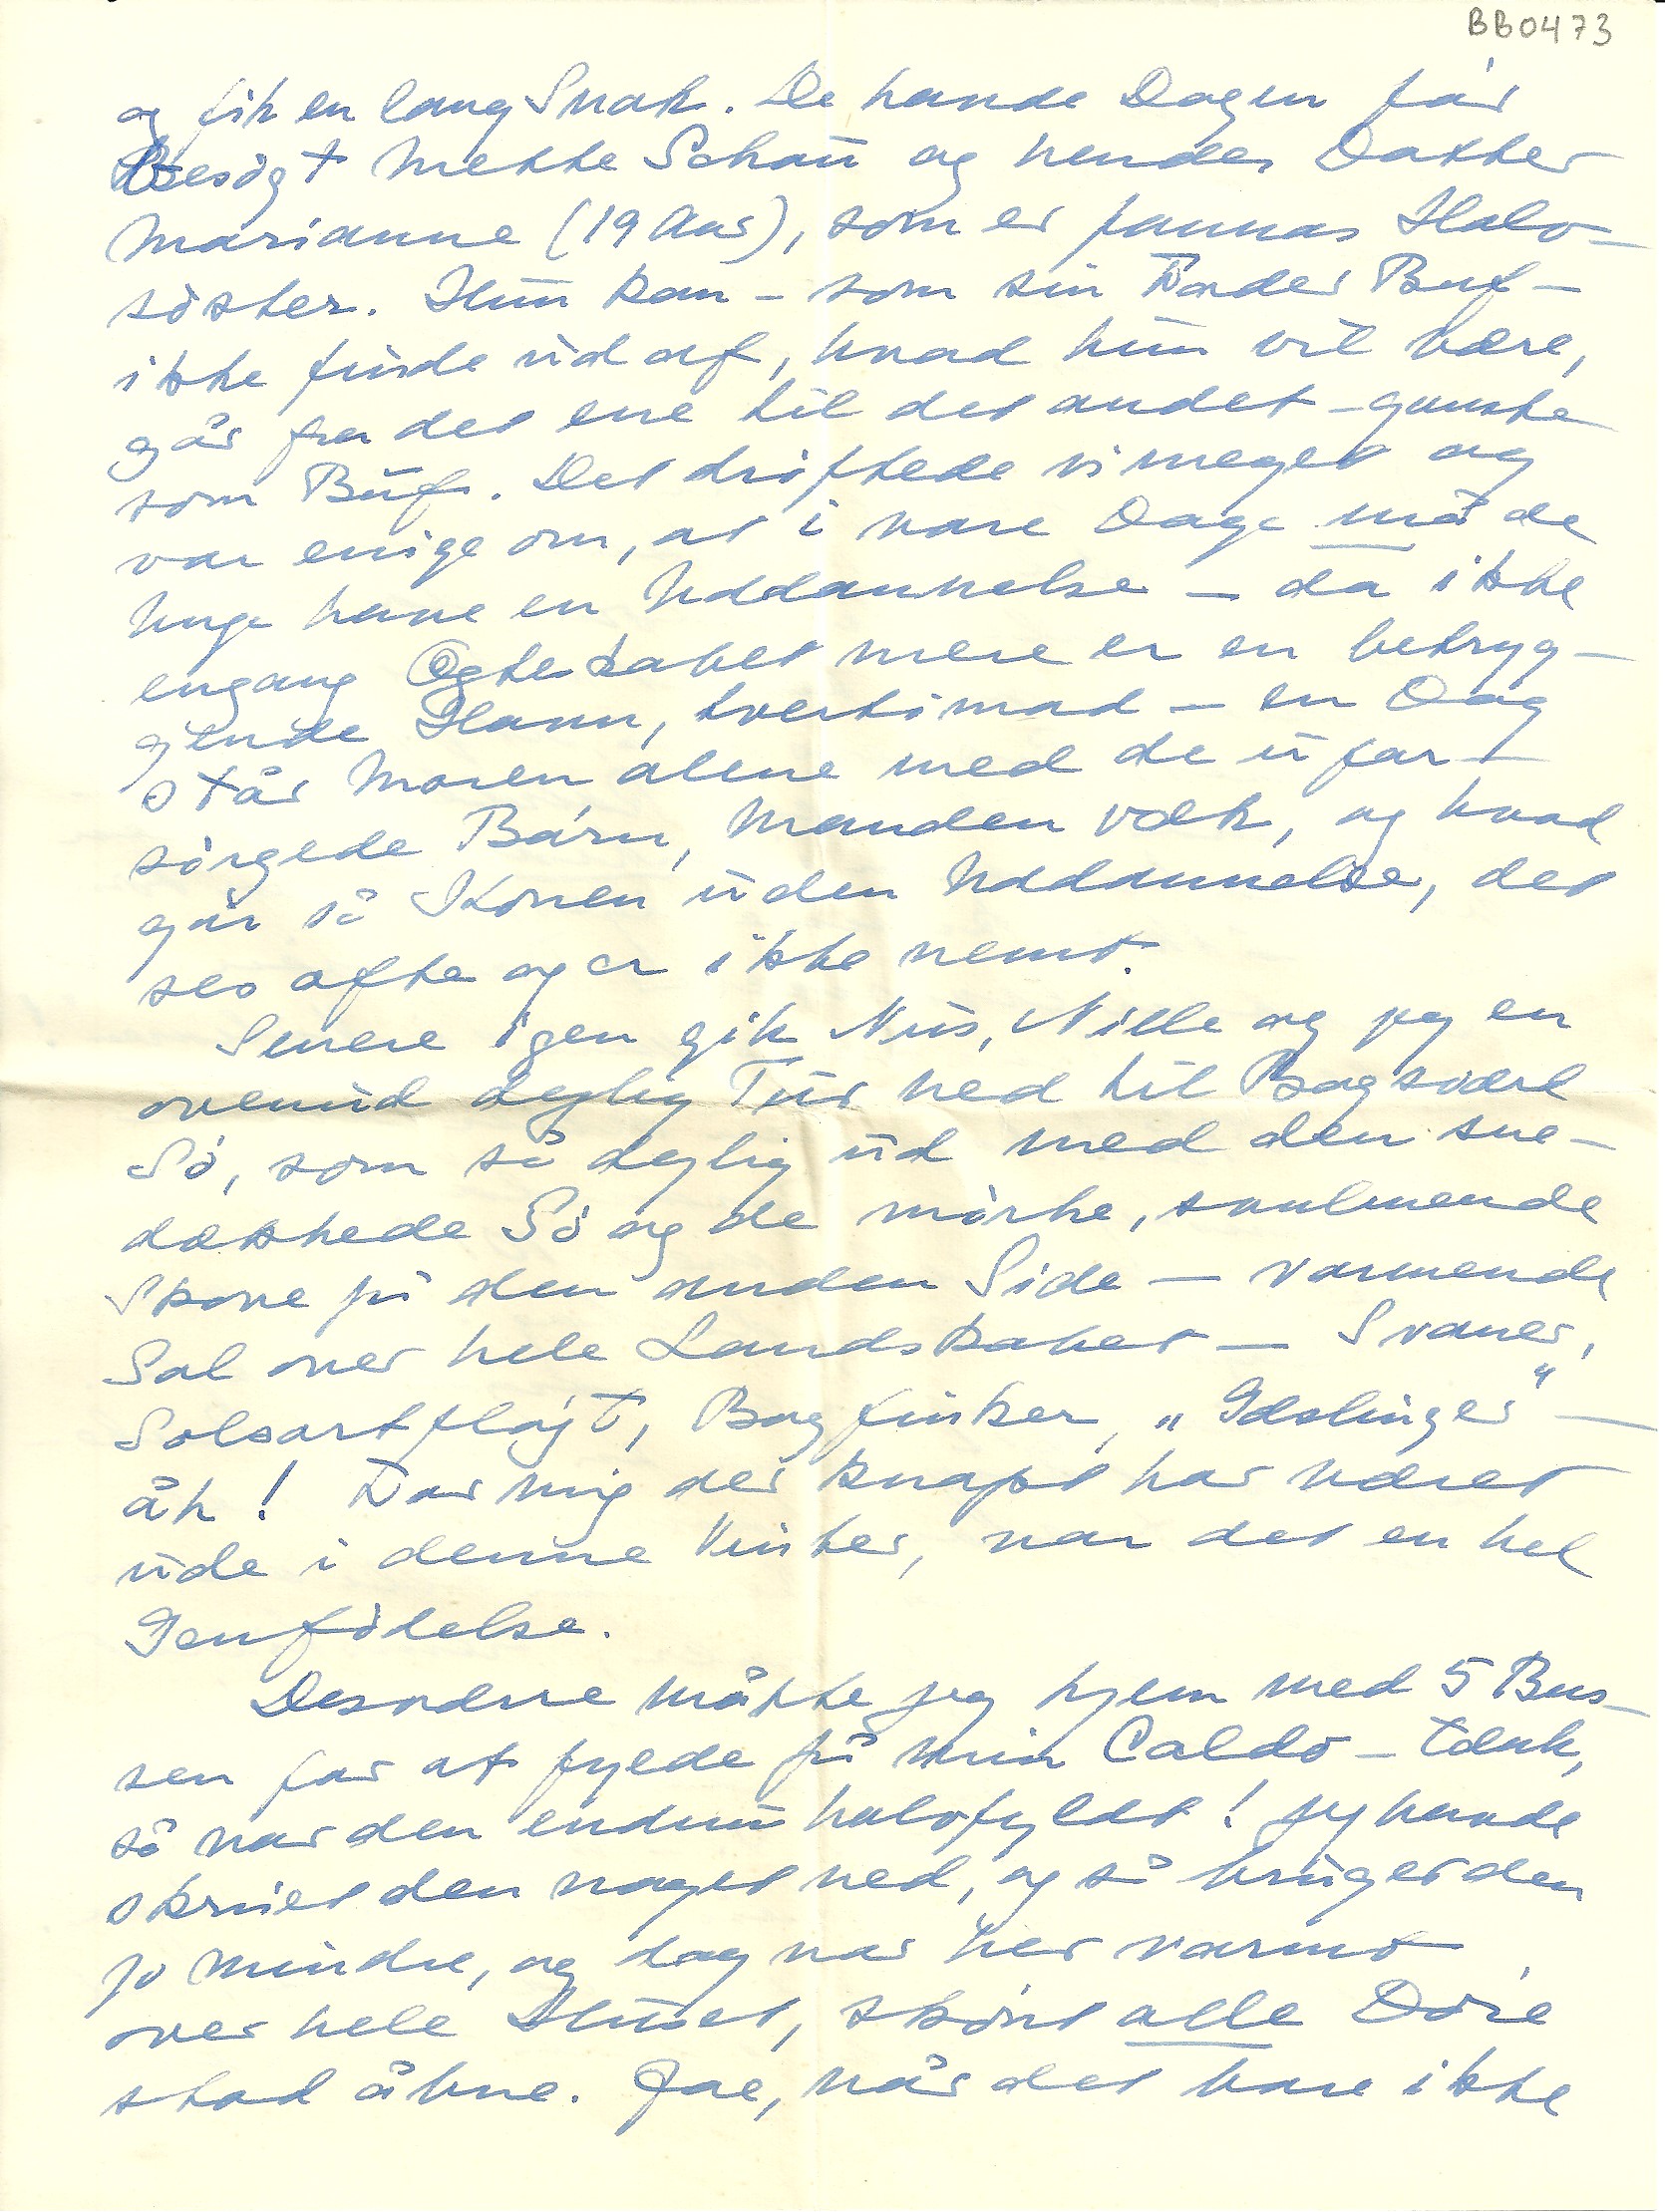 BB0473
og fik en lang Snak. De havde Dagen før
Besøgt Mette Schou og hendes Datter
Marianne (19 Aar), som er Jannas Halv-
søster. Hun kan – som sin Fader Buf –
ikke finde ud af, hvad hun vil være,
går fra det ene til det andet – ganske
som Buf. Det drøftede vi meget og
var enige om, at i vore Dage må de
Unge have en Uddannelse – da ikke
engang Ægteskabet mere er en betryg-
gende Havn, tvertimod – en Dag
står Moren alene med de ufor-
sørgede Børn, Manden væk, og hvad
gør så Konen uden Uddannelse, det
ses ofte og er ikke nemt.
Senere igen gik Nus, Nille og jeg en
ovenud dejlig Tur ned til Bagsværd
Sø, som så dejlig ud med den sne-
dækkede Sø og de mørke, svulmende
Skove på den anden Side – varmende
Sol over hele Landskabet – Svaner,
Solsortfløjt, Bogfinker, „Gæslinger" –
åh! For mig der knapt har været
ude i denne Vinter, var det en hel
Genfødelse.
Desværre måtte jeg hjem med 5 Bus-
sen for at fylde på min Caldo-tank,
så var den endnu halvfyldt! Jeg havde
skruet den noget ned, og så bruger den
jo mindre, og dog var her varmt
over hele Huset, skønt alle Døre
stod åbne. Joe, når det bare ikke